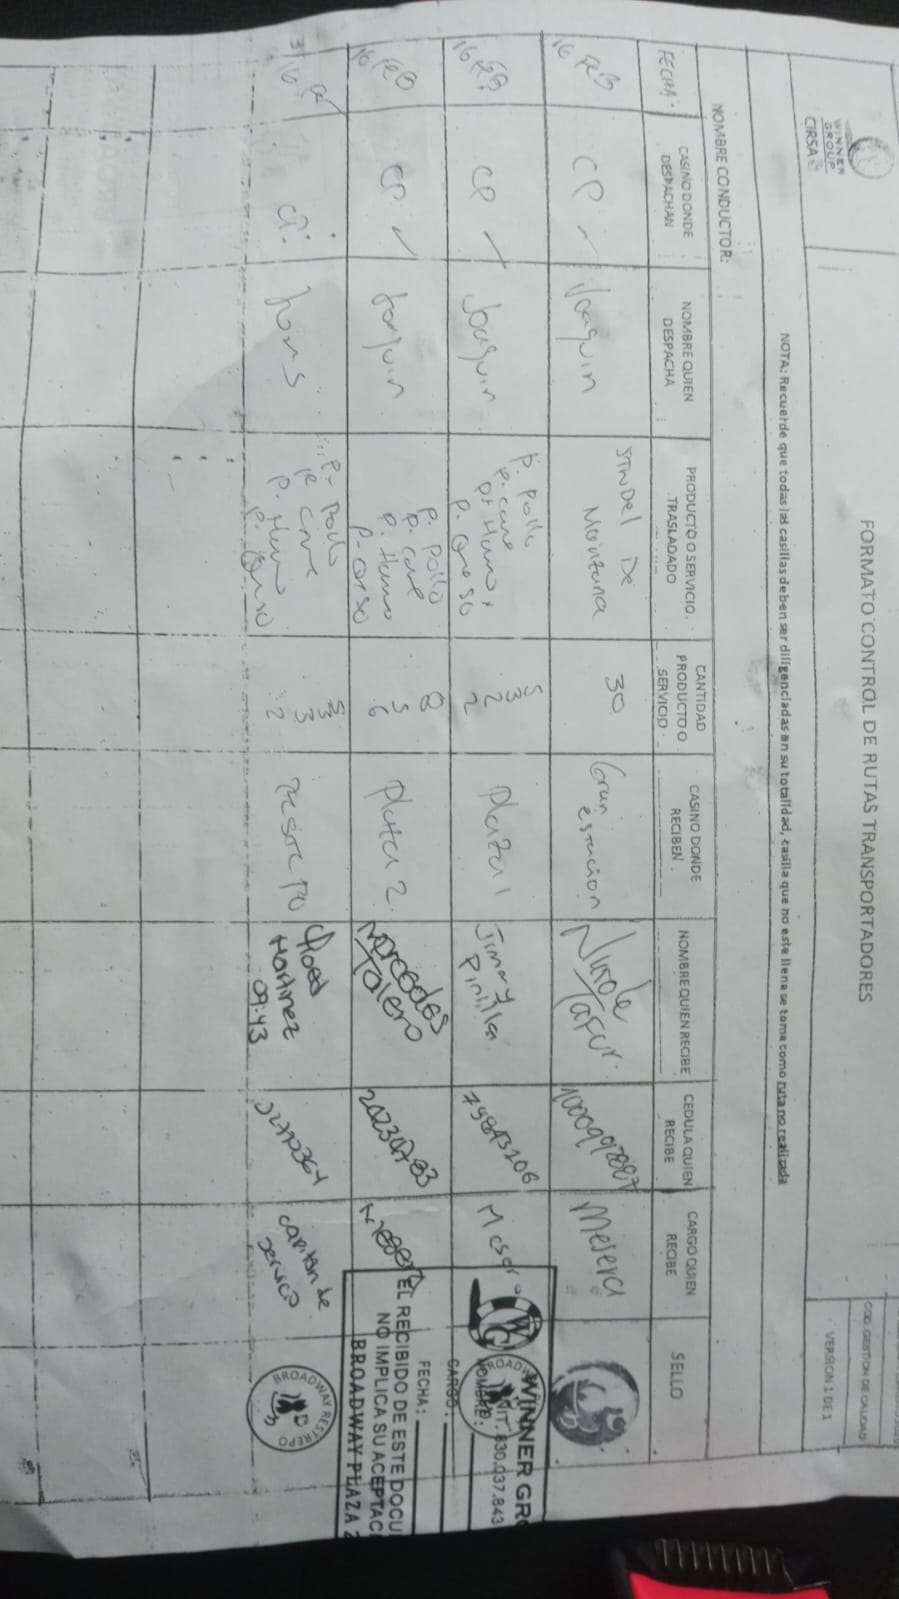 WINNER
GROUP
CIRSA
FORMATO CONTROL DE RUTAS TRANSPORTADORES
COD. GESTION DE CALIDAD
VERSION 1 DE 1
NOTA: Recuerde que todas las casillas deben ser diligenciadas en su totalidad, casilla que no este llena se toma como ruta no realizada
NOMBRE CONDUCTOR:
FECHA
CASINO DONDE DESPACHAN
NOMBRE QUIEN DESPACHA
PRODUCTO O SERVICIO TRASLADADO
CANTIDAD PRODUCTO O SERVICIO
CASINO DONDE RECIBEN
NOMBRE QUIEN RECIBE
CEDULA QUIEN RECIBE
CARGO QUIEN RECIBE
SELLO
16 FEB
CP
Joaquin
De Montana
30
Gran estacion
Nicole Tafur
Mesera
16 FEB
CP
Joaquin
P. Pollo
P. carne
P. Huevo
P. Queso
5
3
2
2
Plaza 1
Jimmy Pinilla
Mesero
WINNER GRO
NIT. 830.037.843
NOMBRE:
CARGO:
FECHA:
EL RECIBIDO DE ESTE DOCU
NO IMPLICA SU ACEPTAC
BROADWAY PLAZA 2
16 FEB
CP
Joaquin
P. Pollo
P. Carne
P. Huevo
P. Queso
8
5
6
Plaza 2
Mercedes Talero
20230783
16
P. Pollo
P. Carne
P. Huevo
P. Queso
5
3
3
2
Martinez
09:43
capitan de servicio
BROADWAY RESTREPO